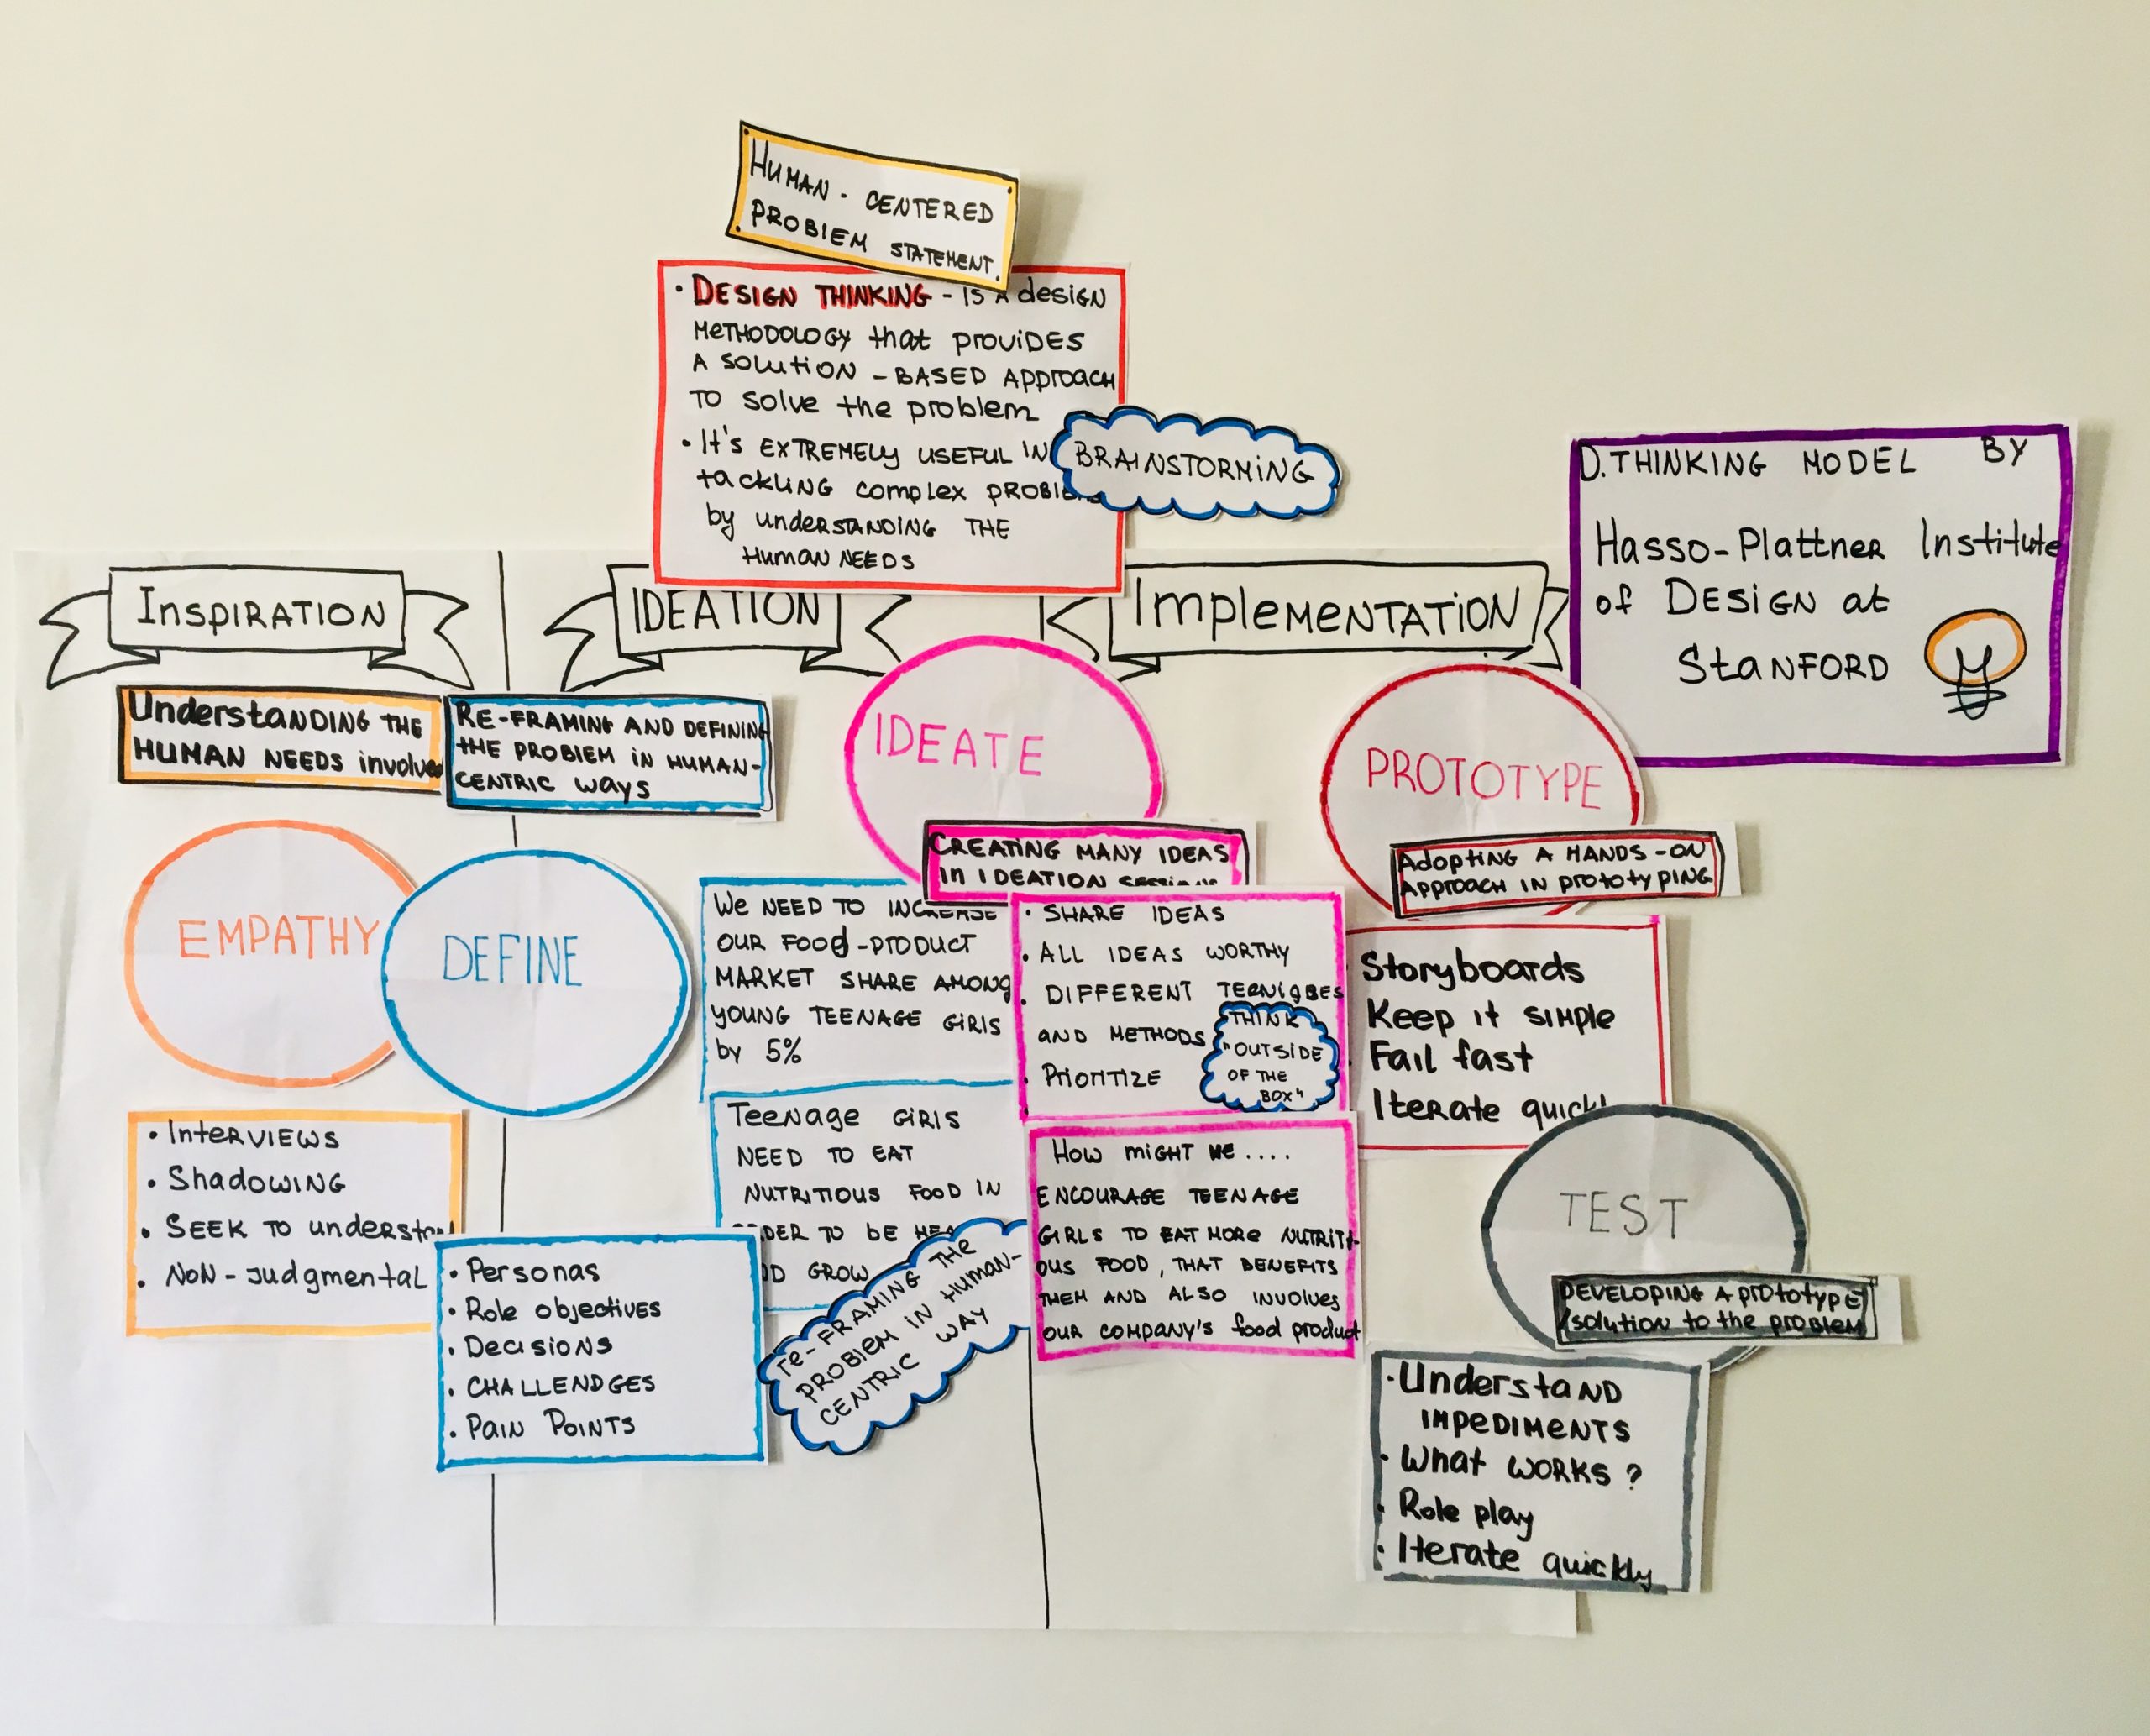 HUMAN - CENTERED
PROBLEM STATEMENT.
• DESIGN THINKING - IS A design
METHODOLOGY that provides
A solution - BASED Approach
TO solve the problem
• It's EXTREMELY USEFUL IN
tackling complex
by understanding THE
Human NEEDS
BRAINSTORMING
D.THINKING MODEL BY
Hasso-Plattner Institute
of DESIGN at
STANFORD
INSPIRATION
IDEATION
Implementation
Understanding the
HUMAN NEEDS
RE-FRAMING AND DEFINING
THE PROBLEM IN HUMAN-
CENTRIC ways
EMPATHY
DEFINE
IDEATE
PROTOTYPE
CREATING MANY IDEAS
IN IDEATION
Adopting A HANDS-ON
Approach in prototyping
We NEED TO INCREASE
OUR FOOD-PRODUCT
MARKET SHARE AMONG
YOUNG TEENAGE GIRLS
by 5%
Teenage GIRLS
NEED TO EAT
NUTRITIOUS FOOD IN
TO BE
GROW
re-FRAMING THE
PROBLEM IN HUMAN-
CENTRIC WAY
• SHARE IDEAS
• ALL IDEAS WORTHY
• DIFFERENT
AND METHODS
• PRIORITIZE
THINK
"OUTSIDE
OF THE
BOX"
How might we....
ENCOURAGE TEENAGE
GIRLS TO EAT MORE NUTRITI-
OUS FOOD, THAT BENEFITS
THEM AND ALSO INVOLVES
OUR COMPANY'S food product
Storyboards
Keep it simple
Fail fast
Iterate
• Interviews
• Shadowing
• SEEK TO
• NON-Judgmental
• Personas
• Role objectives
• Decisions
• CHALLENDGES
• PAIN POINTS
TEST
DEVELOPING A prototype
/solution to the problem
• Understand
impediments
• What works?
• Role play
• Iterate quickly